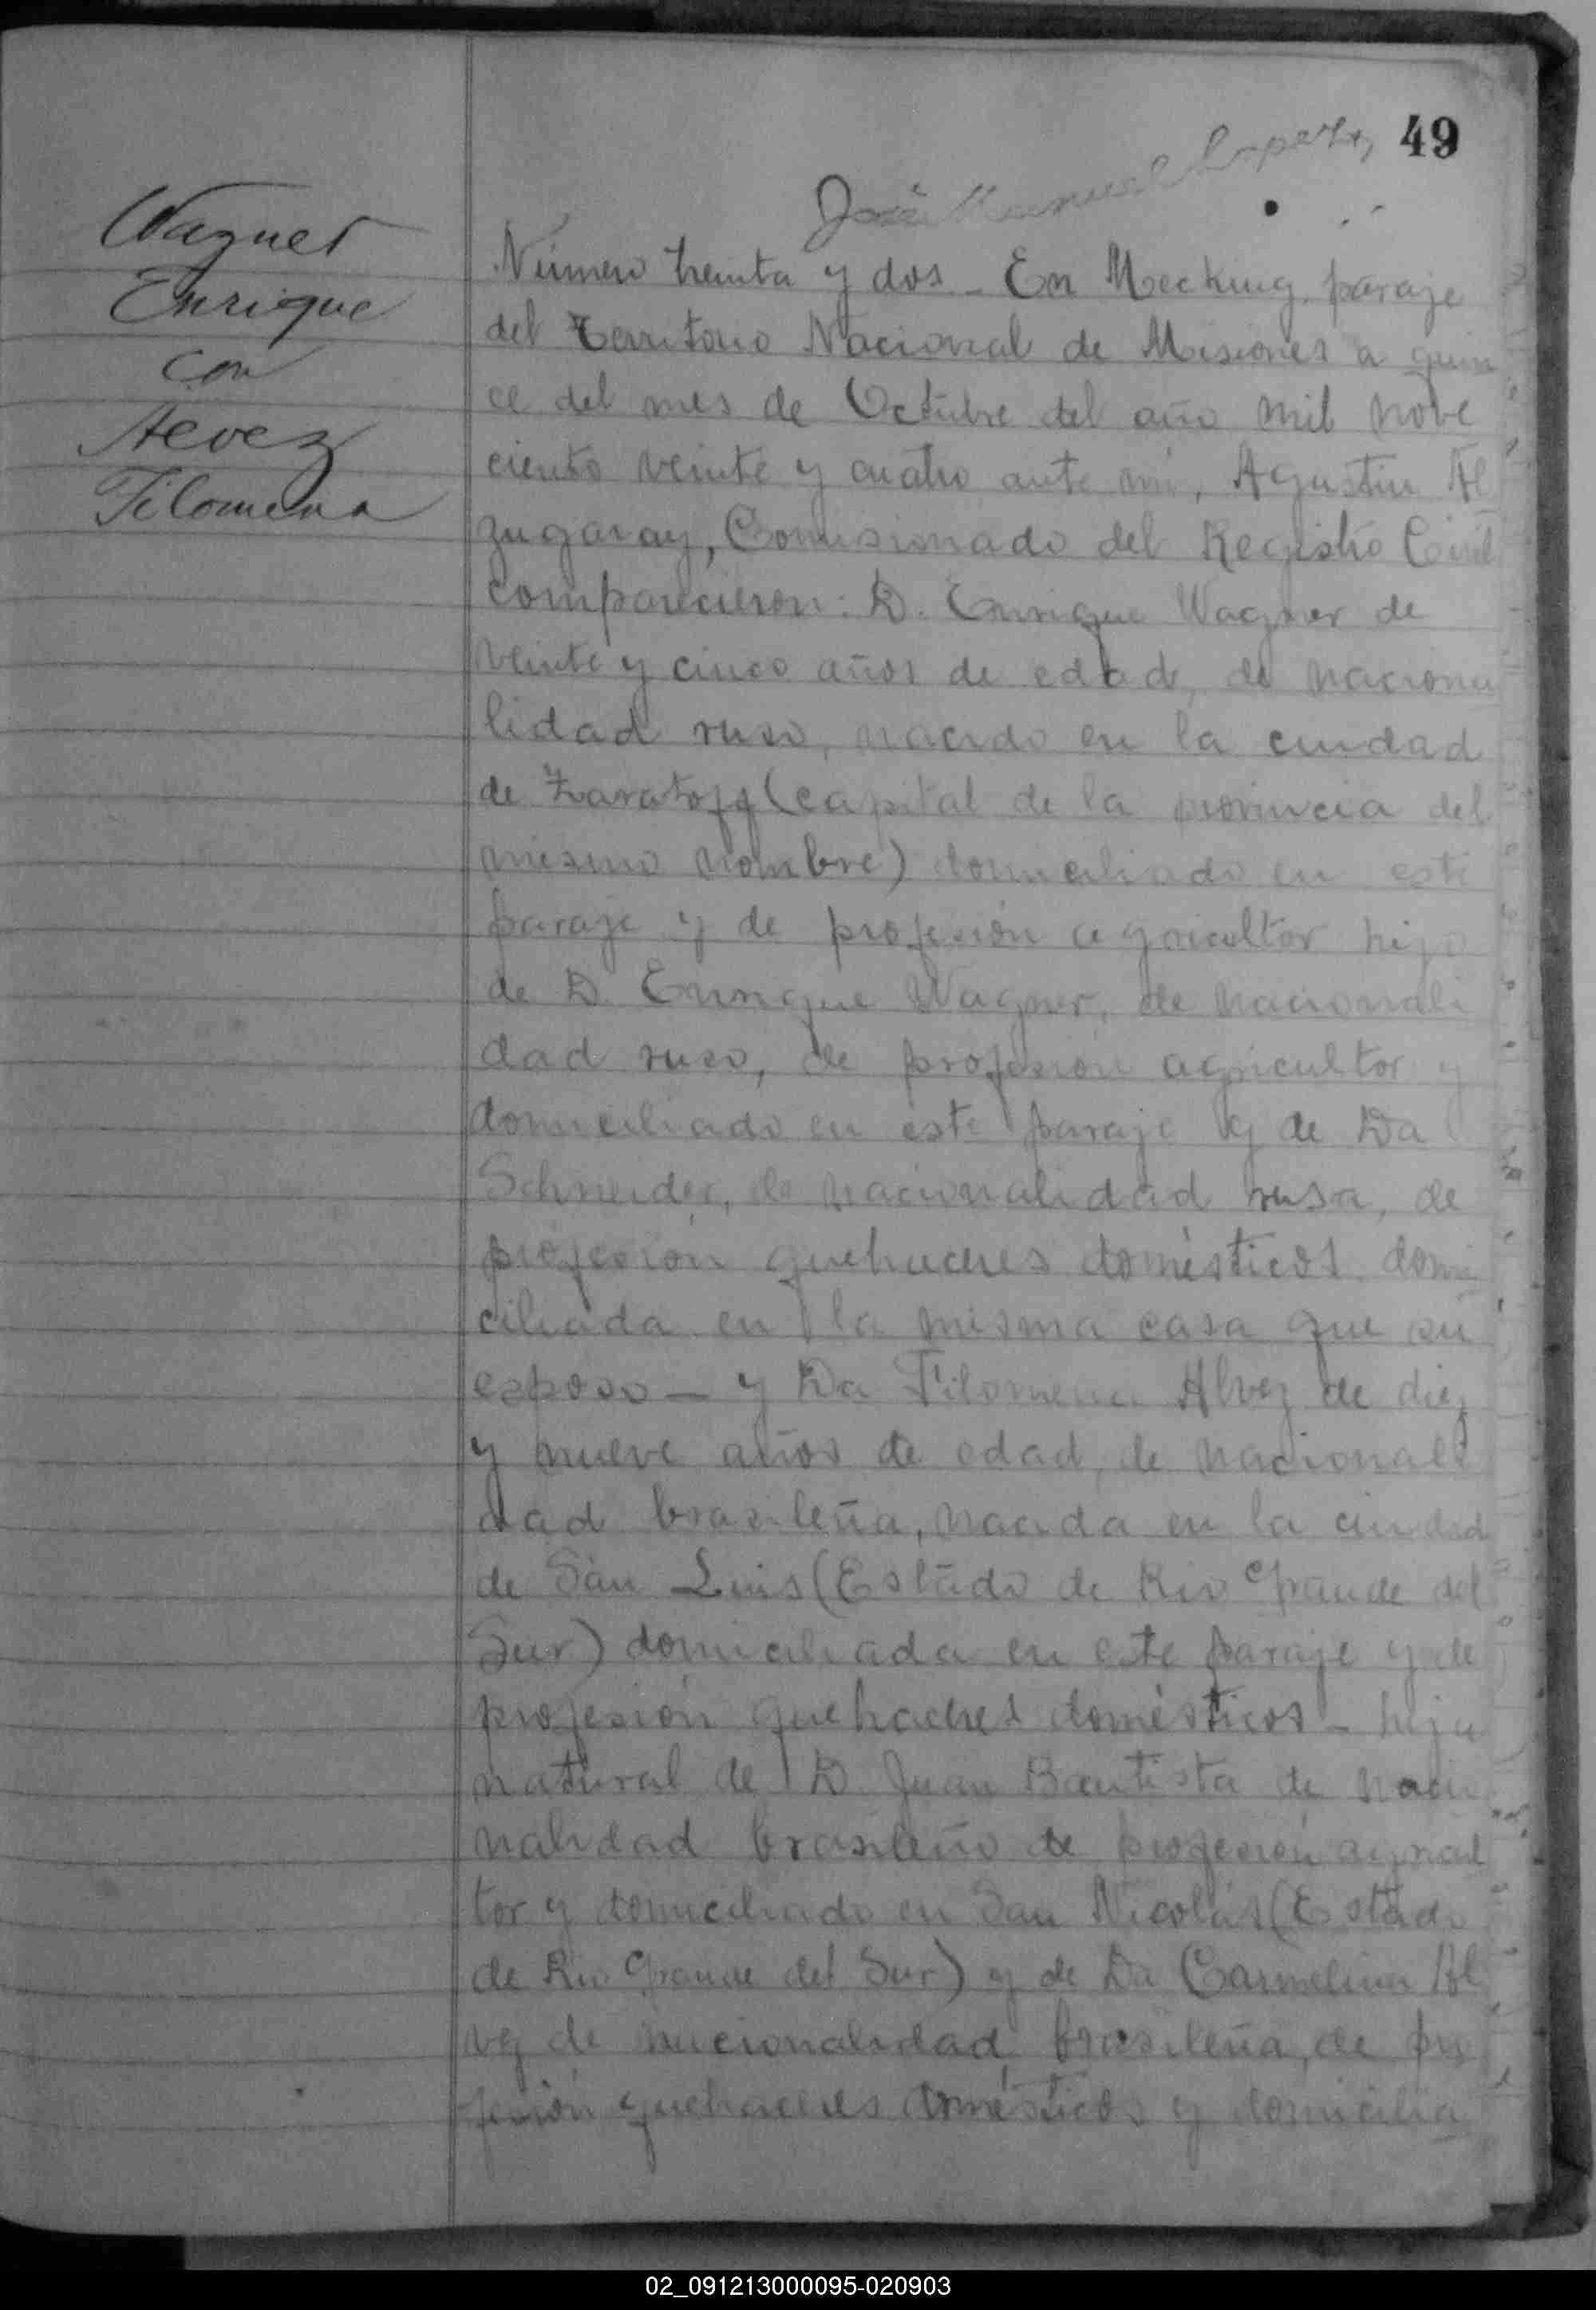 49
José Manuel Lopez
Wagner
Enrique
con
Alvez
Filomena
Número treinta y dos _ En Mecking, paraje
del Territorio Nacional de Misiones a quin
ce del mes de Octubre del año mil nove
ciento veinte y cuatro ante mi, Agustin Al
zugaray, Comisionado del Registro Civil
comparecieron: D. Enrique Wagner de
veinte y cinco años de edad, de naciona
lidad ruso, nacido en la ciudad
de Zaratoff (capital de la provincia del
mismo nombre) domiciliado en este
paraje y de profesión agricultor hijo
de D. Enrique Wagner, de nacionali
dad ruso, de profesión agricultor y
domiciliado en este paraje y de Da
Schneider, de nacionalidad rusa, de
profesión quehaceres domésticos domi
ciliada en la misma casa que su
esposo _ y Da Filomena Alvez de diez
y nueve años de edad, de nacionali
dad brasileña, nacida en la ciudad
de San Luis (Estado de Rio Grande del
Sur) domiciliada en este paraje y de
profesión quehaceres domésticos _ hija
natural de D. Juan Bautista de nacio
nalidad brasileño de profesión agricul
tor y domiciliado en San Nicolás (Estado
de Rio Grande del Sur) y de Da Carmelina Al
vez de nacionalidad brasileña, de pro
fesión quehaceres domésticos y domicilia
02_091213000095-020903